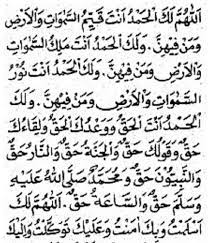 اَللّٰهُمَّ لَكَ الْحَمْدُ اَنْتَ قَيِّمُ السَّمٰوَاتِ وَالْاَرْضِ
وَمَنْ فِيْهِنَّ. وَلَكَ الْحَمْدُ اَنْتَ مَلِكُ السَّمٰوَاتِ
وَالْاَرْضِ وَمَنْ فِيْهِنَّ. وَلَكَ الْحَمْدُ اَنْتَ نُوْرُ
السَّمٰوَاتِ وَالْاَرْضِ وَمَنْ فِيْهِنَّ. وَلَكَ
الْحَمْدُ اَنْتَ الْحَقُّ وَوَعْدُكَ الْحَقُّ وَلِقَاءُكَ
حَقٌّ وَقَوْلُكَ حَقٌّ وَالْجَنَّةُ حَقٌّ وَالنَّارُ حَقٌّ
وَالنَّبِيُّوْنَ حَقٌّ وَمُحَمَّدٌ صَلَّى اللهُ عَلَيْهِ
وَسَلَّمَ حَقٌّ وَالسَّاعَةُ حَقٌّ. اَللّٰهُمَّ لَكَ
اَسْلَمْتُ وَبِكَ اٰمَنْتُ وَعَلَيْكَ تَوَكَّلْتُ وَاِلَيْكَ